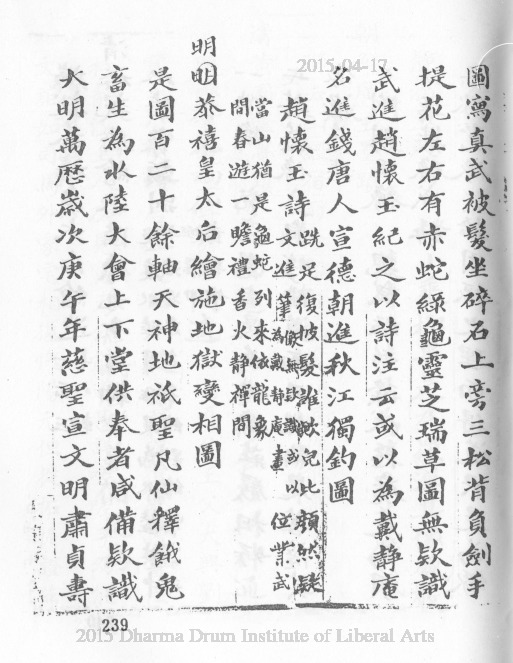 圖寫真武被髮坐碎石上旁三松背負劍手
提花左右有赤蛇綠龜靈芝瑞草圖無欵識
武進趙懷玉紀之以詩注云或以為戴靜庵
名進錢唐人宣德朝進秋江獨釣圖
趙懷玉詩
跣足復披髮誰歟兒此頹然疑
文進筆
像無欵識或以
為戴靜庵畫
位業武
當山猶是龜蛇列來依龍象
間春遊一瞻禮香火靜禪間
明
明恭禧皇太后繪施地獄變相圖
是圖百二十餘軸天神地祇聖凡仙釋餓鬼
畜生為水陸大會上下堂供奉者咸備欵識
大明萬厯嵗次庚午年慈聖宣文明肅貞壽
239
2015-04-17
2015 Dharma Drum Institute of Liberal Arts